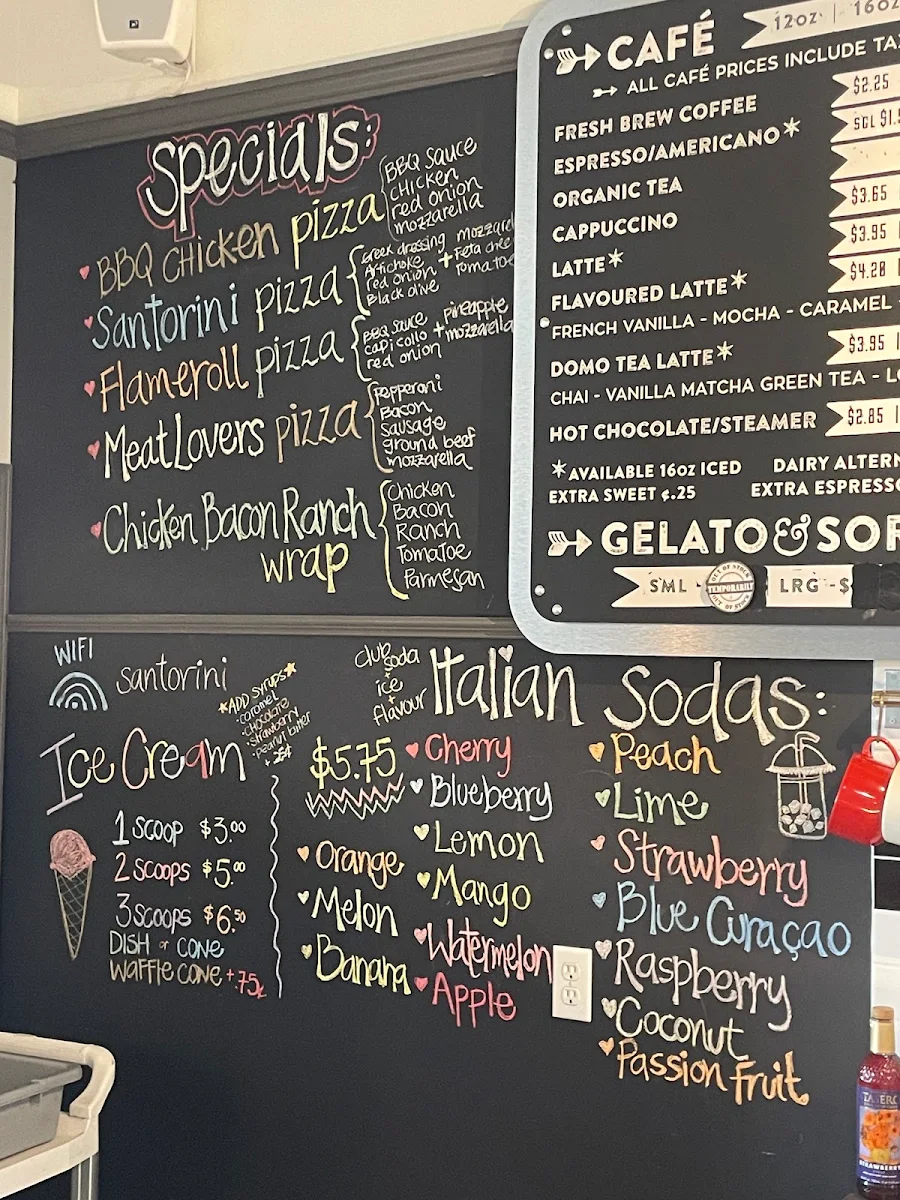 Specials:
BBQ CHICKEN pizza
BBQ Sauce
CHICKEN
red onion
mozzarella
Santorini pizza
Greek dressing
Artichoke
red onion
Black olive
+
Feta
Tomatoe
Flameroll pizza
BBQ sauce
capicollo
red onion
+
pineapple
mozzarella
Meat Lovers pizza
Pepperoni
Bacon
Sausage
ground beef
mozzarella
Chicken Bacon Ranch
wrap
Chicken
Bacon
Ranch
Tomatoe
Parmesan
CAFÉ
12oz | 16oz
ALL CAFÉ PRICES INCLUDE
FRESH BREW COFFEE
$2.25
ESPRESSO/AMERICANO*
SGL
ORGANIC TEA
CAPPUCCINO
$3.65
LATTE*
$3.95
FLAVOURED LATTE*
$4.20
FRENCH VANILLA - MOCHA - CARAMEL -
DOMO TEA LATTE*
$3.95
CHAI - VANILLA MATCHA GREEN TEA -
HOT CHOCOLATE/STEAMER
$2.85
*AVAILABLE 16oz ICED
DAIRY
EXTRA SWEET ¢.25
EXTRA ESPRESSO
GELATO &
SML -
OUT OF STOCK
TEMPORARILY
OUT OF STOCK
LRG -$
WIFI
santorini
*ADD syrups*
•caramel
•chocolate
•strawberry
•peanut butter
Ice Cream
1 SCOOP $3.00
2 SCOOPS $5.00
3 SCOOPS $6.50
DISH or CONE
WAFFLE CONE +.75¢
club soda
+
ice
+
flavour
Italian Sodas:
$5.75
Orange
Melon
Banana
Cherry
Blueberry
Lemon
Mango
Watermelon
Apple
Peach
Lime
Strawberry
Blue Curaçao
Raspberry
Coconut
Passion fruit
STRAWBERRY